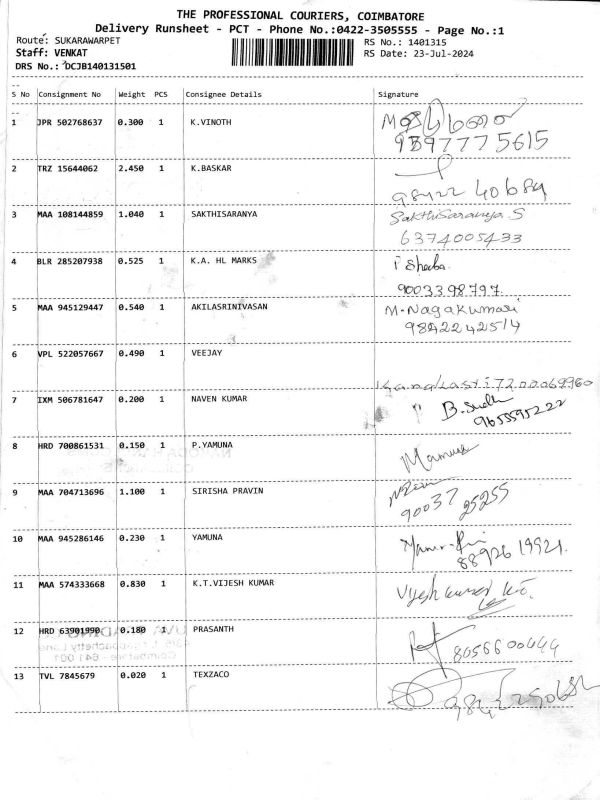 THE PROFESSIONAL COURIERS, COIMBATORE
Delivery Runsheet - PCT - Phone No.:0422-3505555 - Page No.:1
Route: SUKARAWARPET
RS No.: 1401315
Staff: VENKAT
RS Date: 23-Jul-2024
DRS No.: DCJB140131501
S No Consignment No Weight PCS Consignee Details Signature
1 JPR 502768637 0.300 1 K.VINOTH
9597775615
2 TRZ 15644062 2.450 1 K.BASKAR
98422 40684
3 MAA 108144859 1.040 1 SAKTHISARANYA SakthiSaranya.S
6374005433
4 BLR 285207938 0.525 1 K.A. HL MARKS Sheeba.
9003398797
5 MAA 945129447 0.540 1 AKILASRINIVASAN M.Nagakumari
9842242514
6 VPL 522057667 0.490 1 VEEJAY
7200069960
7 IXM 506781647 0.200 1 NAVEN KUMAR " B.Sudha
9655595222
8 HRD 700861531 0.150 1 P.YAMUNA
9 MAA 704713696 1.100 1 SIRISHA PRAVIN
90037 25255
10 MAA 945286146 0.230 1 YAMUNA
88926 19921.
11 MAA 574333668 0.830 1 K.T.VIJESH KUMAR Vijesh kumar
12 HRD 63901990 0.180 1 PRASANTH 8056600444
13 TVL 7845679 0.020 1 TEXZACO